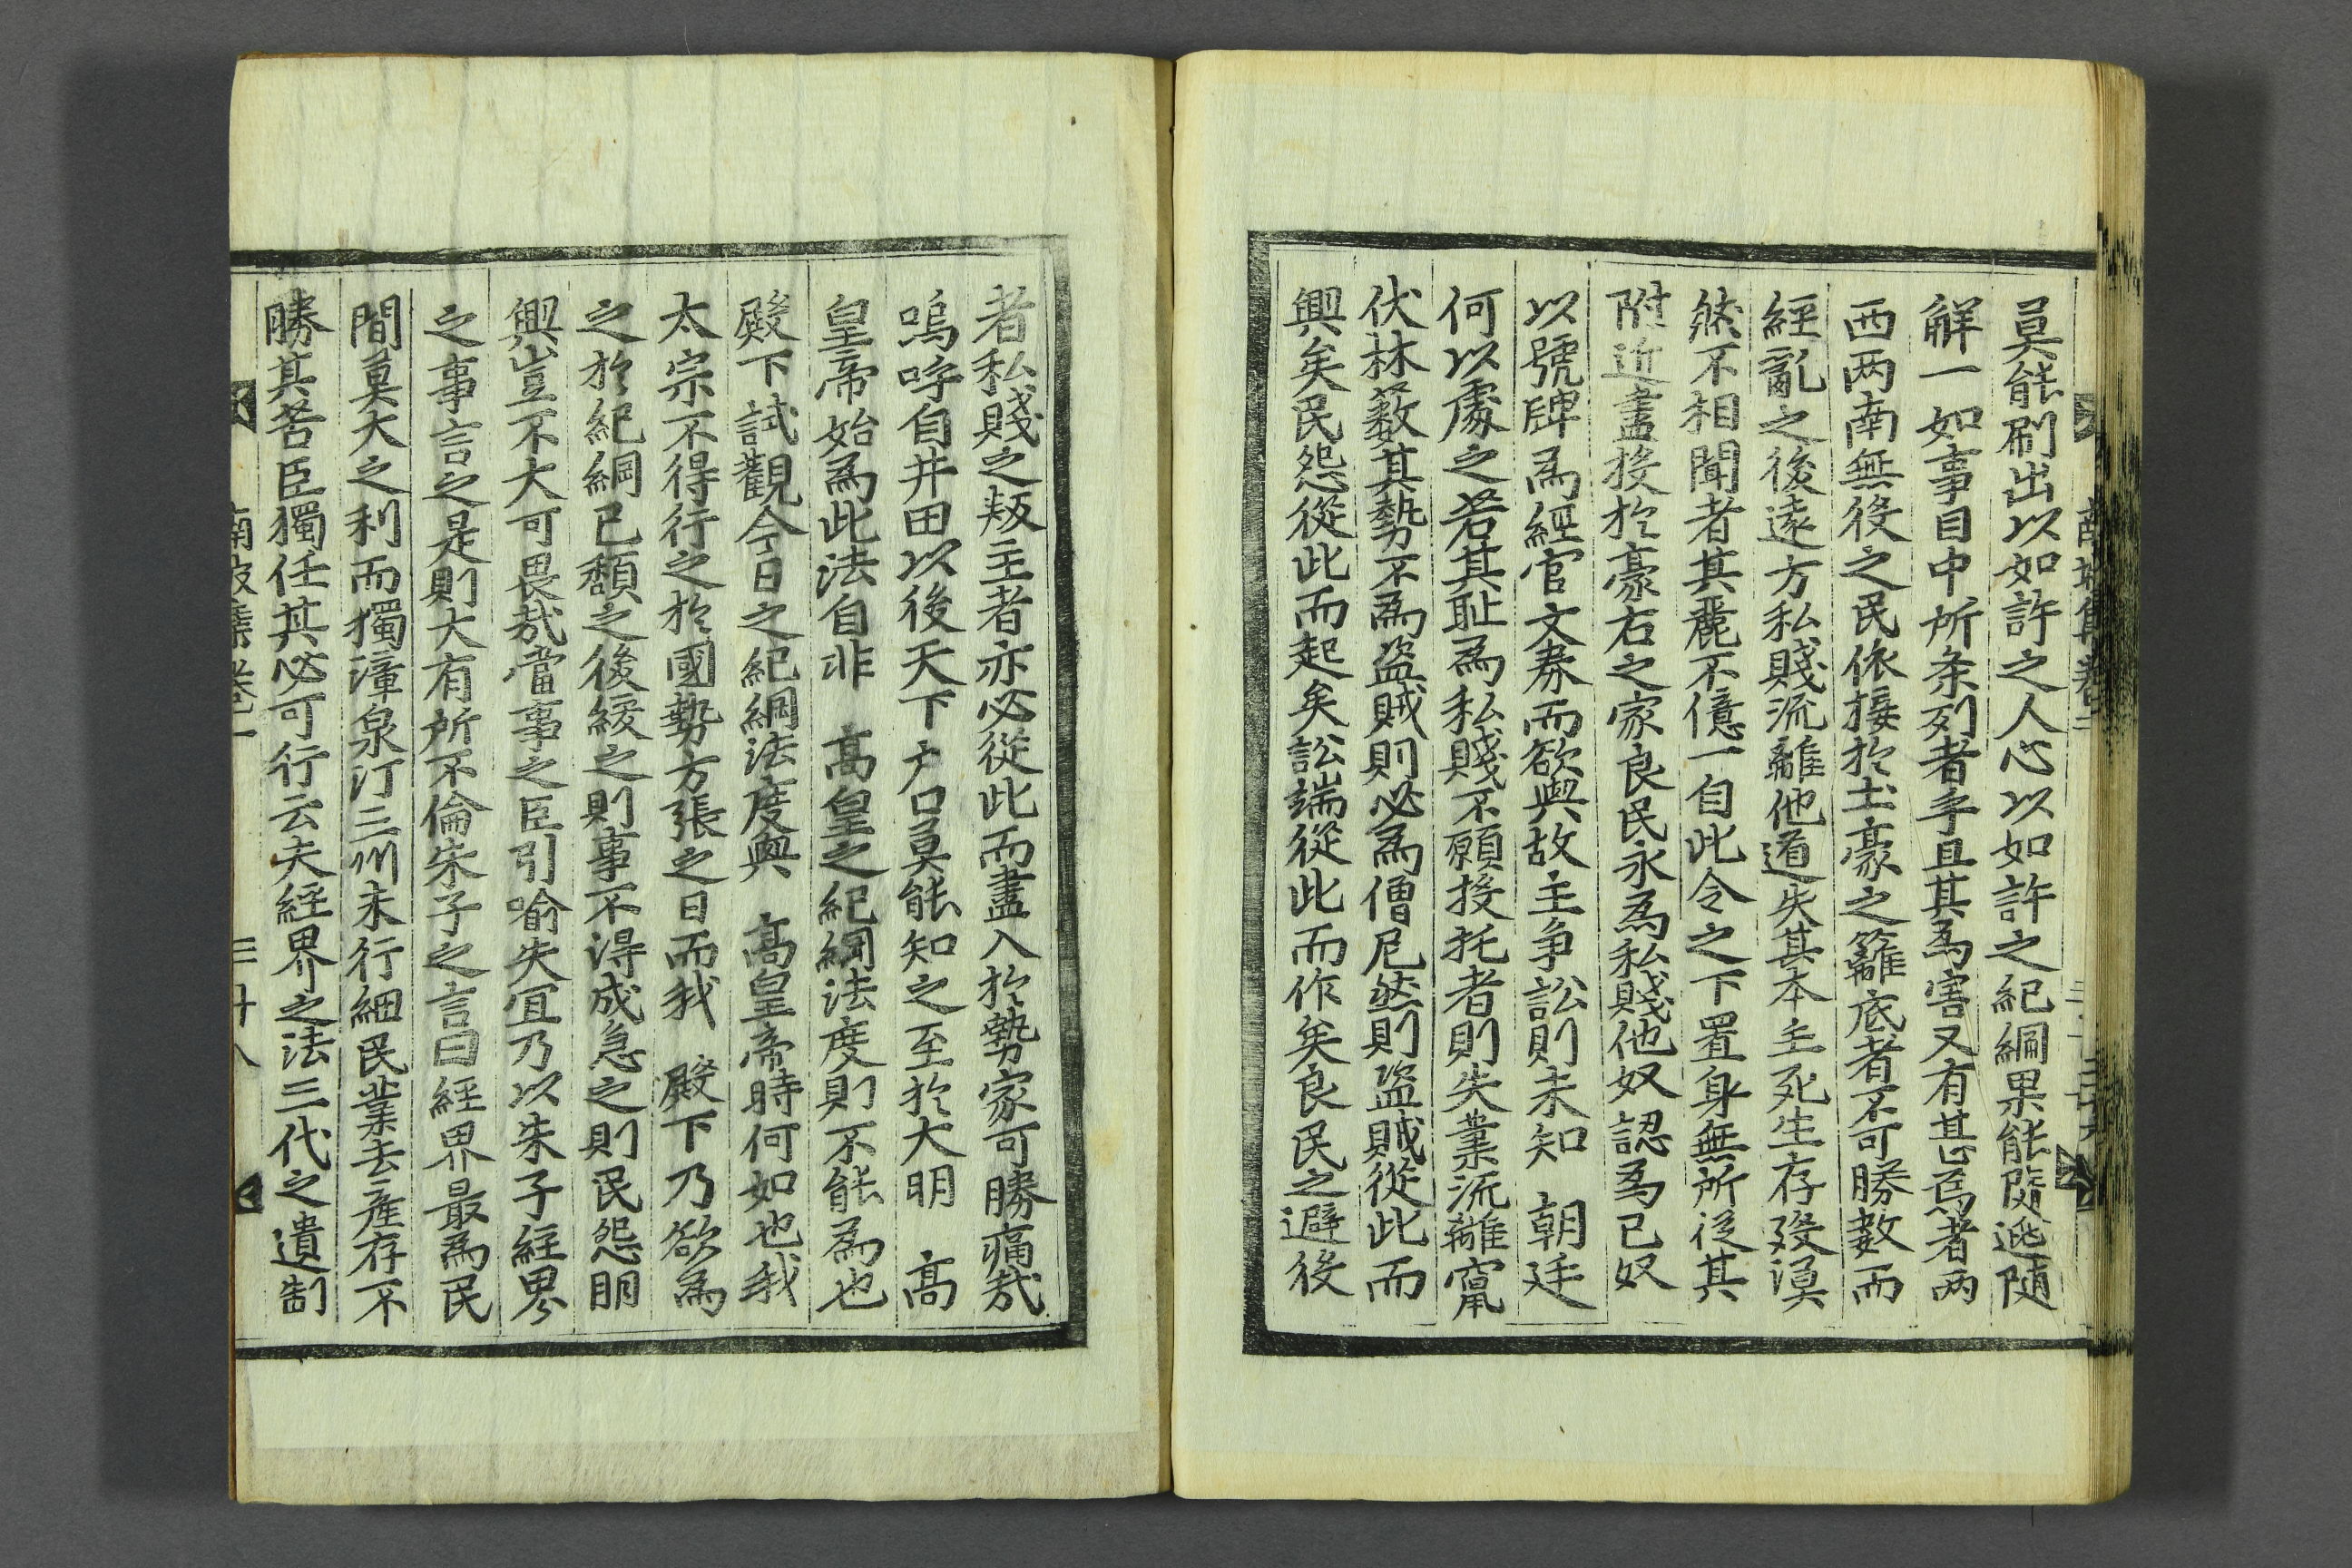 莫能刷出以如許之人心以如許之紀綱果能隨逃隨
觧一如事目中所条列者乎且其爲害又有甚焉者两
西两南無役之民依接於土豪之籬底者不可勝數而
經亂之後遠方私賤流離他道失其本主死生存歿漠
然不相聞者其麗不億一自此令之下置身無所役其
附近盡投於豪右之家良民永爲私賤他奴認爲己奴
以號牌爲經官文券而欲與故主争訟則未知 朝廷
何以處之若其耻爲私賤不願投托者則失業流離竄
伏林藪其勢不爲盜賊則必爲僧尼然則盜賊從此而
興矣民怨從此而起矣訟端從此而作矣良民之避役
者私賤之叛主者亦必從此而盡入於勢家可勝痛哉
嗚呼自井田以後天下户口莫能知之至於大明 高
皇帝始爲此法自非 高皇之紀綱法度則不能爲也
殿下試觀今日之紀綱法度與 高皇帝時何如也我
太宗不得行之於國勢方張之日而我 殿下乃欲爲
之於紀綱已頹之後緩之則事不得成急之則民怨朋
興豈不大可畏哉當事之臣引喻失宜乃以朱子經界
之事言之是則大有所不倫朱子之言曰經界最爲民
間莫大之利而獨漳泉汀三州未行細民業去産存不
勝其苦臣獨任其必可行云夫經界之法三代之遺制
卷一
三十八